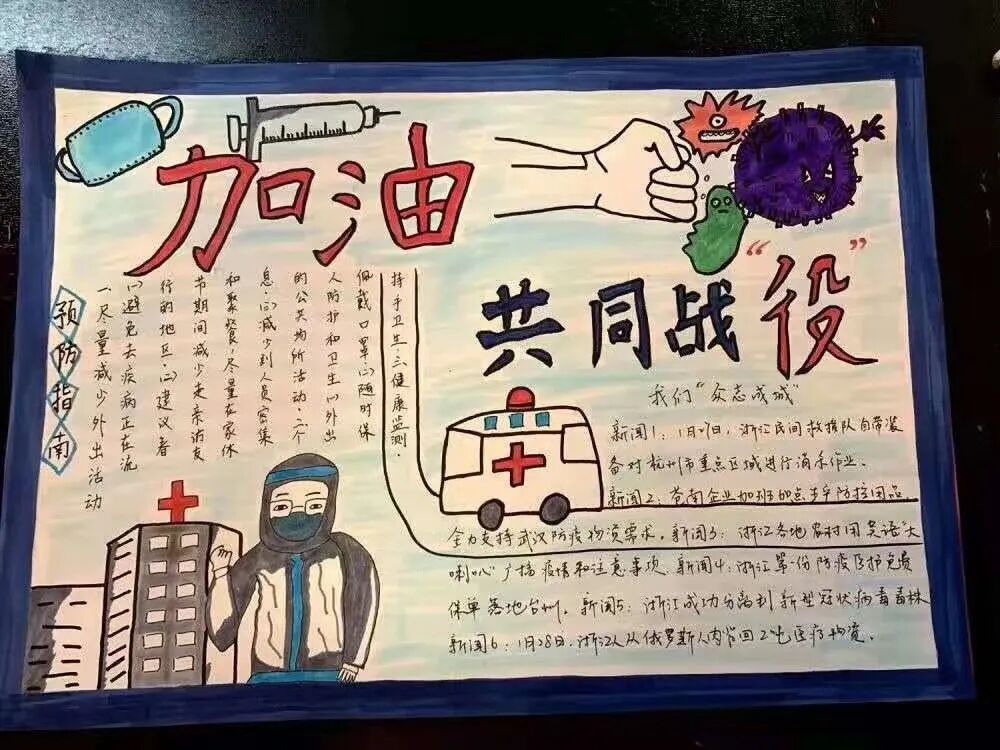 加油
共同战“役”
预防指南
一、尽量减少外出活动
(1)避免去疾病正在流
行的地区。(2)建议春
节期间减少走亲访友
和聚餐,尽量在家休
息。(3)减少到人员密集
的公共场所活动。二个
人防护和卫生(1)外出
佩戴口罩(2)随时保
持手卫生三健康监测。
我们“众志成城”
新闻1:1月27日,浙江民间救援队自带装
备对杭州市重点区域进行消杀作业。
新闻2:苍南企业加班加点生产防控用品
全力支持武汉防疫物资需求。新闻3:浙江各地农村用 大
喇叭广播疫情和注意事项 新闻4:浙江第一份防疫 护免费
保单落地台州。新闻5:浙江成功分离到新型冠状病毒毒株
新闻6:1月28日.浙江人从俄罗斯人肉背回 医疗物资。